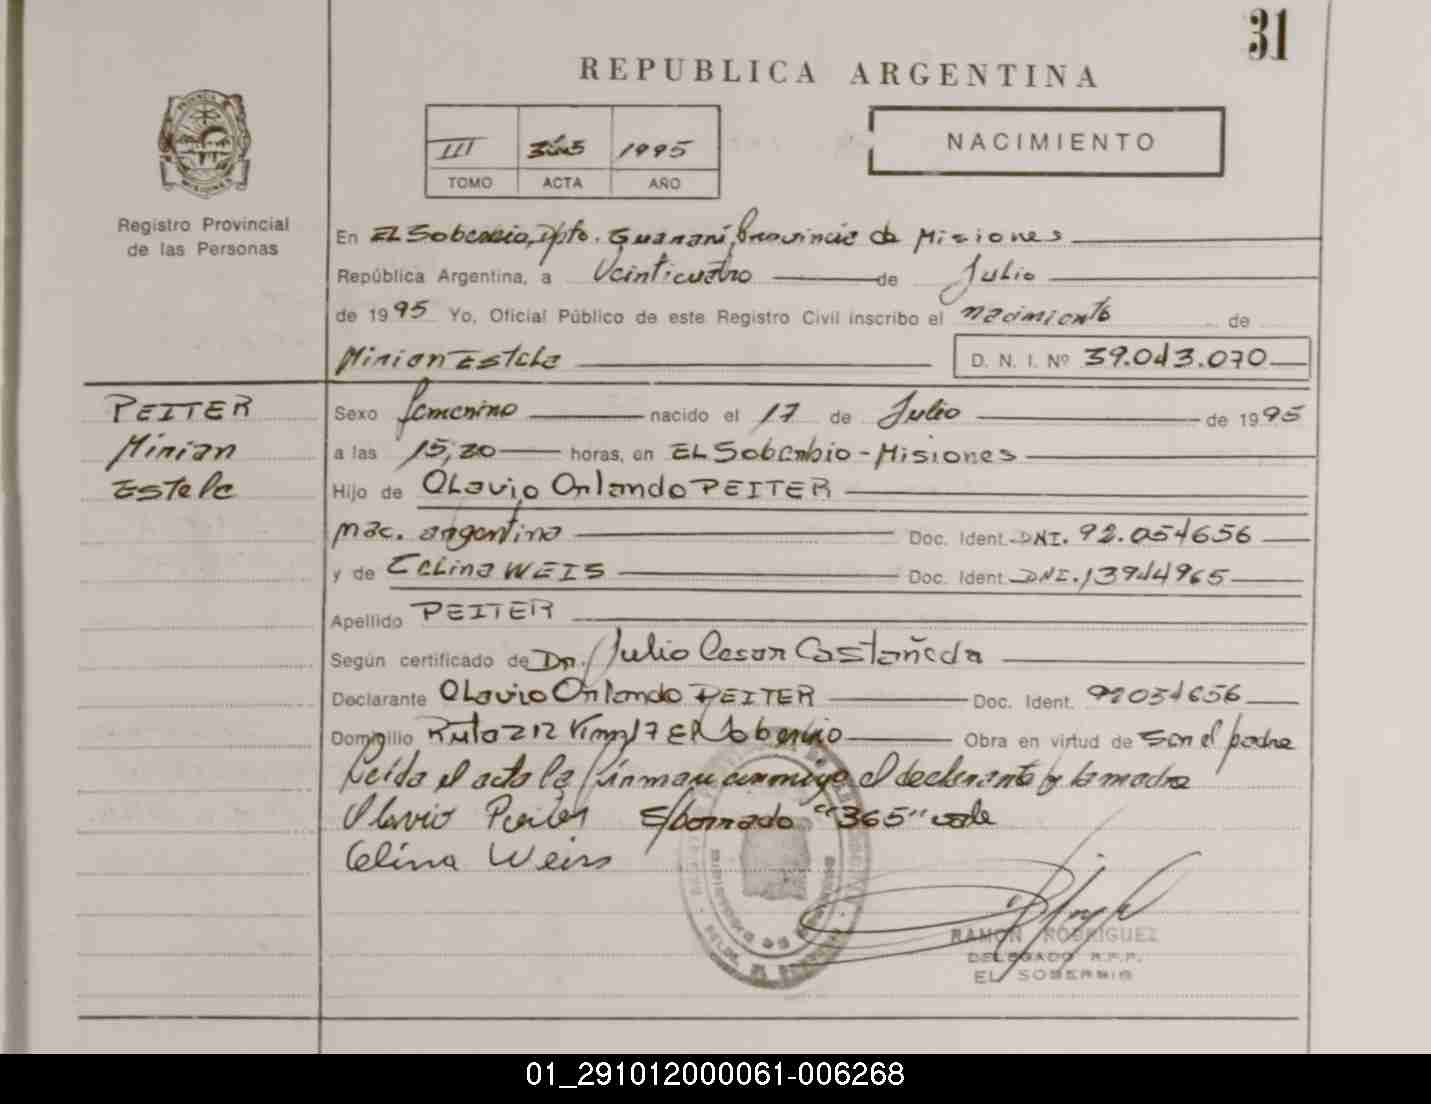 31
REPUBLICA ARGENTINA
III 1995
TOMO ACTA AÑO
NACIMIENTO
Registro Provincial
de las Personas
En EL Soberbio, Dpto. Guaraní, Provincia de Misiones
República Argentina, a Veinticuatro de Julio
de 1995 Yo, Oficial Público de este Registro Civil inscribo el nacimiento de
Mirian Estela D. N. I. Nº 39.043.070
PEITER
Mirian
Estela
Sexo femenino nacido el 17 de Julio de 1995
a las horas, en EL Soberbio - Misiones
Hijo de OLavio Orlando PEITER
nac. argentina Doc. Ident. DNI. 92.054656
y de Celina WEIS Doc. Ident. DNI. 13944965
Apellido PEITER
Según certificado de Dr. Julio Cesar Castañeda
Declarante OLavio Orlando PEITER Doc. Ident. 92054656
Domicilio Ruta 212 Km 17 El Soberbio Obra en virtud de ser el padre
Leída el acta la firman conmigo el declarante y la madre
Olavio Peiter S/borrado "365" vale
Celina Weiss
RAMON RODRIGUEZ
DELEGADO R.P.P.
EL SOBERBIO
01_291012000061-006268